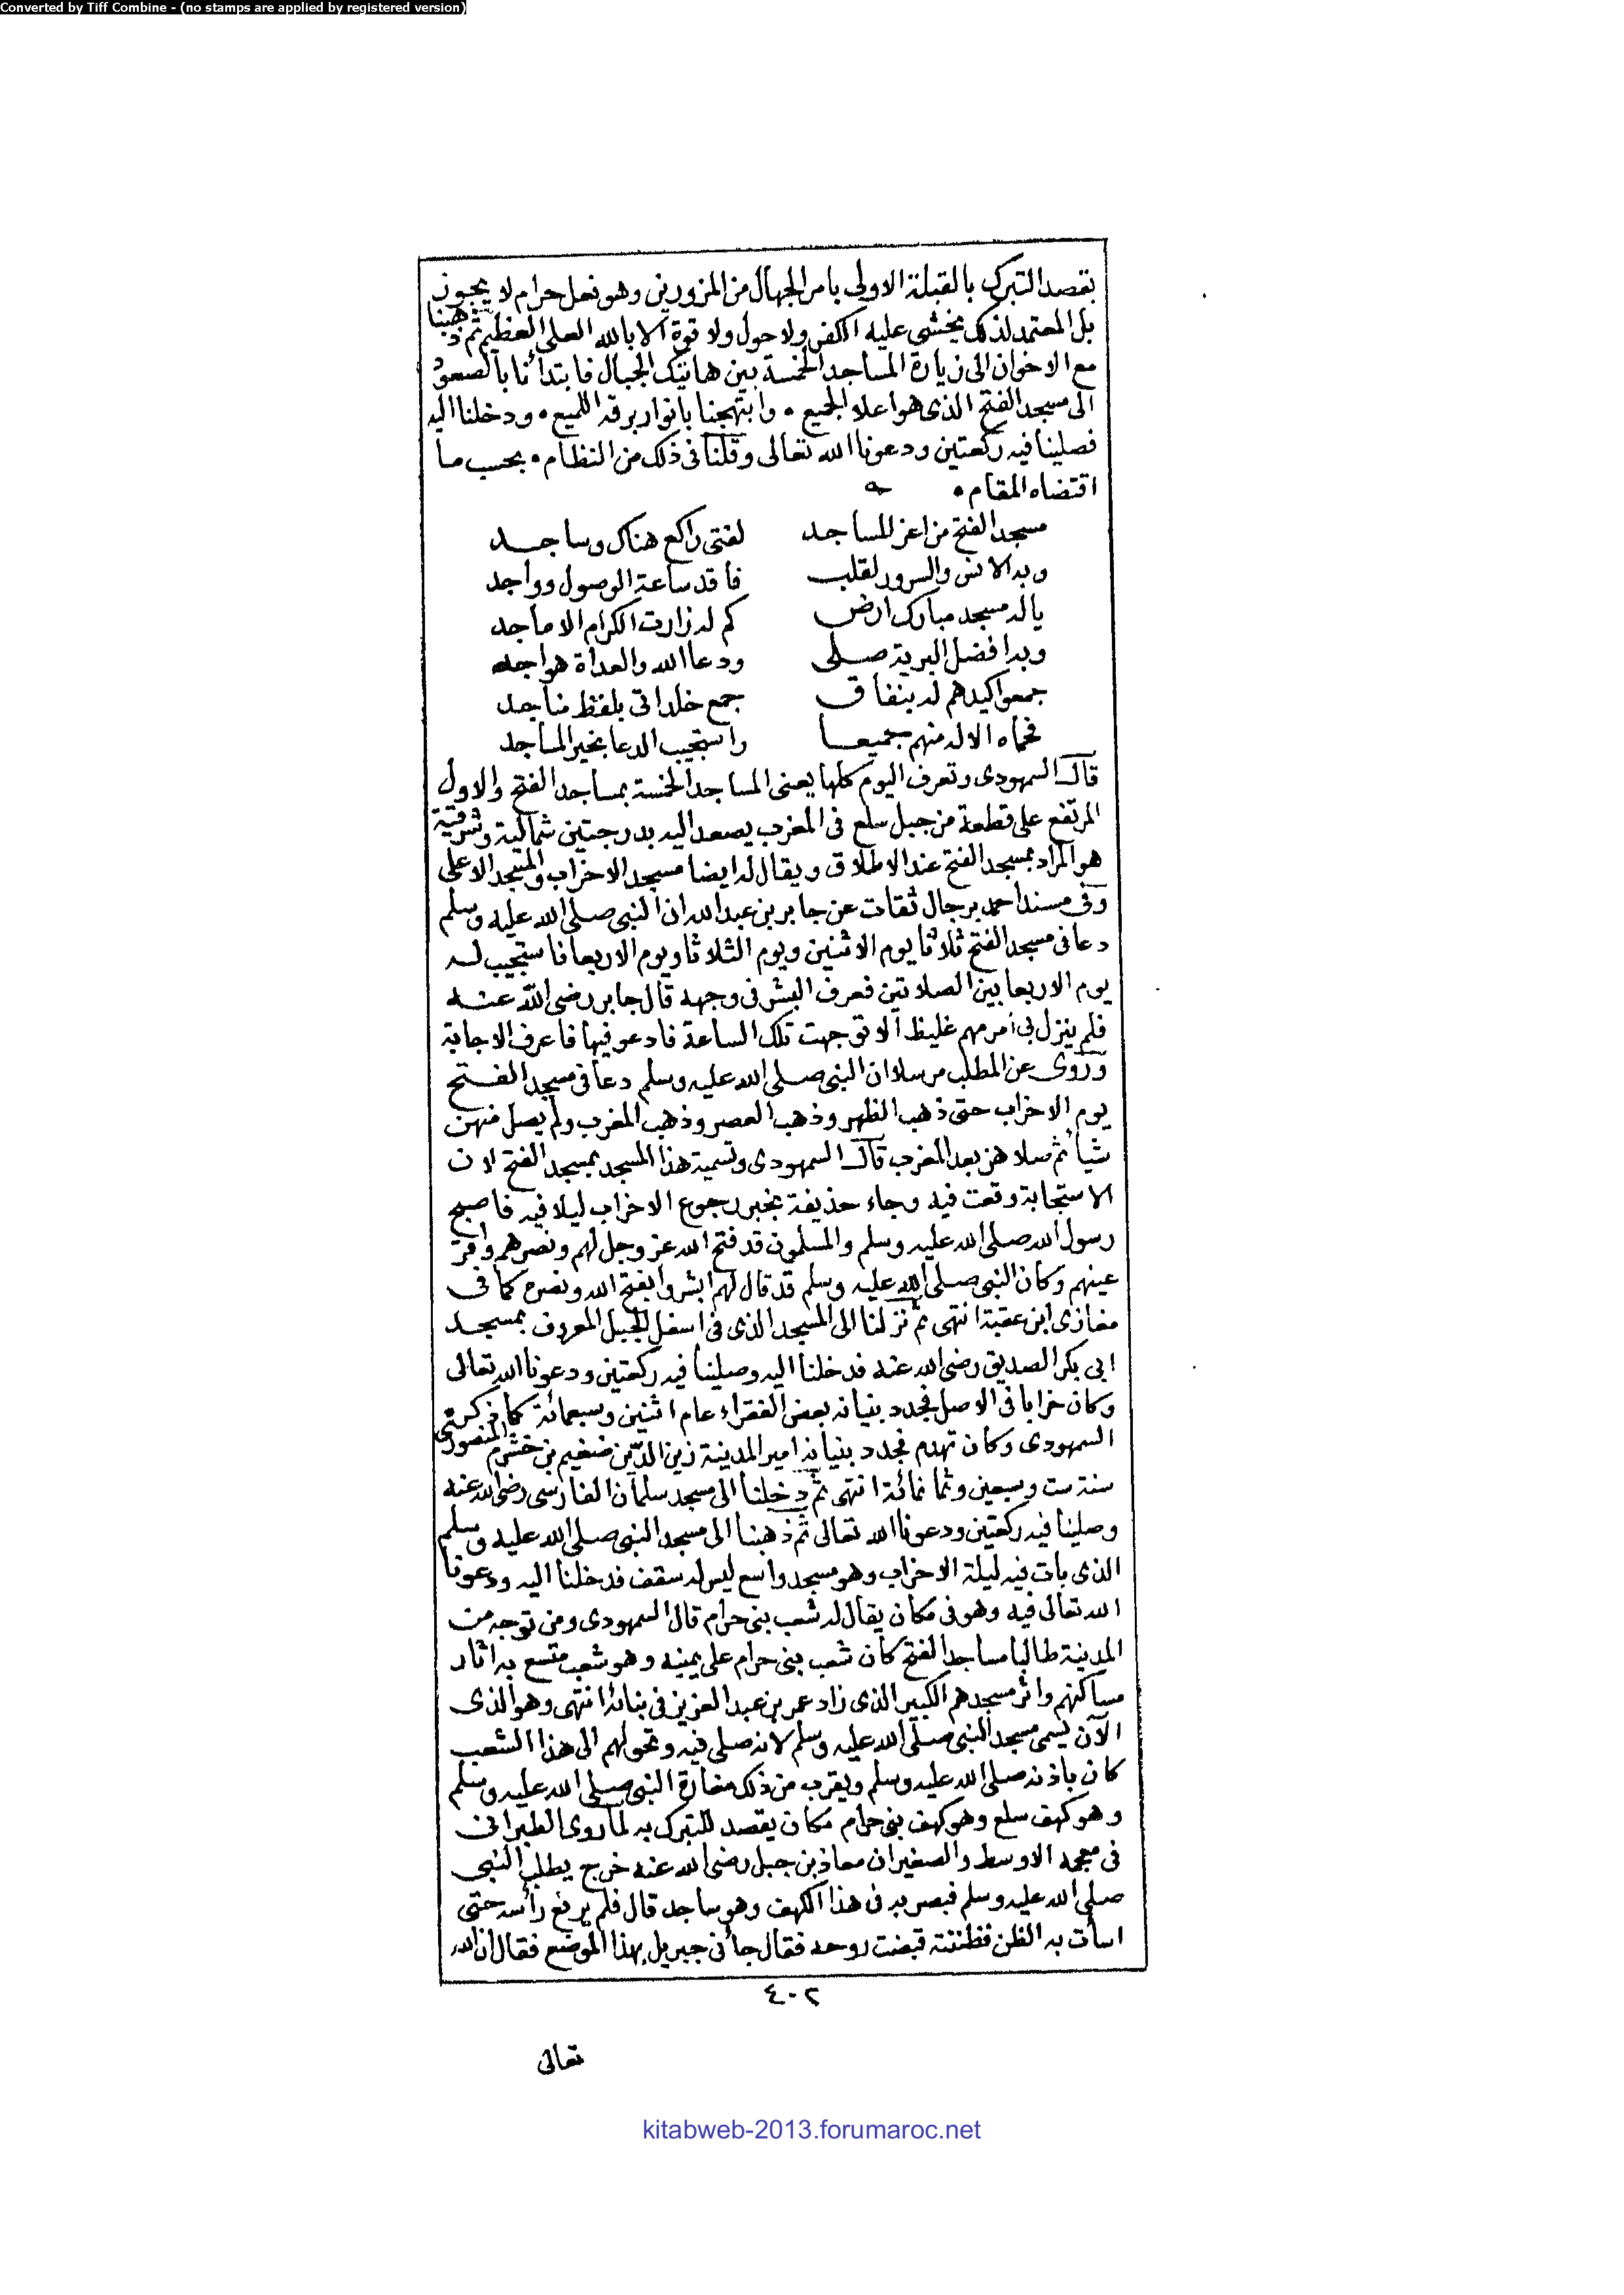 Converted by Tiff Combine - (no stamps are applied by registered version)
بقصد التبرك بالقبلة الاولى بامر الجهال من المزورين وهو فعل حرام لا يجوز
بل المعتمد لذلك يخشى عليه الكفر ولا حول ولا قوة الا بالله العلى العظيم ثم ذهبنا
مع الاخوان الى زيارة المساجد الخمسة بين هاتيك الجبال فابتدأنا بالصعود
الى مسجد الفتح الذى هو اعلا الجميع ٠ وابتهجنا بانوار برقه اللميع ٠ ودخلنا اليه
فصلينا فيه ركعتين ودعونا الله تعالى وقلنا فى ذلك من النظام ٠ بحسب ما
اقتضاه المقام ٠
مسجد الفتح من اعز المساجد لفتى راكع هناك وساجد
وبه الانس والسرور لقلب فاقد ساعة الوصول وواجد
ياله مسجد مبارك ارض كم له زارت الكرام الاماجد
وبه افضل البرية صلى ودعا الله والعداة هواجد
جمعوا كيدهم له بنفاق جمع خلد اتى بلفظ مناجد
فحماه الاله منهم جميعا واستجيب الدعا بخير المساجد
قال السمهودى وتعرف اليوم كلها يعنى المساجد الخمسة بمساجد الفتح والاول
المرتفع على قطعة من جبل سلع فى المغرب يصعد اليه بدرجتين شمالية وشرقية
هو المراد بمسجد الفتح عند الاطلاق ويقال له ايضا مسجد الاحزاب والمسجد الاعلى
وفى مسند احمد برجال ثقات عن جابر بن عبد الله ان النبى صلى الله عليه وسلم
دعا فى مسجد الفتح ثلاثا يوم الاثنين ويوم الثلاثا ويوم الاربعا فاستجيب له
يوم الاربعا بين الصلاتين فعرف البشر فى وجهه قال جابر رضى الله عنه
فلم ينزل بى امر مهم غليظ الا توجهت تلك الساعة فادعو فيها فاعرف الاجابة
وروى عن المطلب مرسلا ان النبى صلى الله عليه وسلم دعا فى مسجد الفتح
يوم الاحزاب حتى ذهب الظهر وذهب العصر وذهب المغرب ولم يصل منهن
شيأ ثم صلاهن بعد المغرب قال السمهودى وتسمية هذا المسجد بمسجد الفتح لان
الاستجابة وقعت فيه وجاء حذيفة بخبر رجوع الاحزاب ليلا فيه فاصبح
رسول الله صلى الله عليه وسلم والمسلمون قد فتح الله عز وجل لهم ونصرهم واقر
عينهم وكان النبى صلى الله عليه وسلم قد قال لهم ابشروا بفتح الله ونصره كما فى
مغازى ابن عقبة انتهى ثم نزلنا الى المسجد الذى فى اسفل الجبل المعروف بمسجد
ابى بكر الصديق رضى الله عنه فدخلنا اليه وصلينا فيه ركعتين ودعونا الله تعالى
وكان خرابا فى الاصل فجدد بنيانه بعض الفقراء عام اثنين وسبعمائة كما ذكره
السمهودى وكان تهدم فجدد بنيانه امير المدينة زين الدين ضغيم بن خشرم المنصورى
سنة ست وسبعين وثمانمائة انتهى ثم دخلنا الى مسجد سلمان الفارسى رضى الله عنه
وصلينا فيه ركعتين ودعونا الله تعالى ثم ذهبنا الى مسجد النبى صلى الله عليه وسلم
الذى بات فيه ليلة الاحزاب وهو مسجد واسع ليس له سقف فدخلنا اليه ودعونا
الله تعالى فيه وهو فى مكان يقال له شعب بنى حرام قال السمهودى ومن توجه من
المدينة طالبا مساجد الفتح كان شعب بنى حرام على يمينه وهو شعب متسع به اثار
مساكنهم واثر مسجدهم الكبير الذى زاد عمر بن عبد العزيز فى بنائه انتهى وهو الذى
الآن يسمى مسجد النبى صلى الله عليه وسلم لانه صلى فيه وتحولهم الى هذا الشعب
كان باذنه صلى الله عليه وسلم ويقرب من ذلك مغارة النبى صلى الله عليه وسلم
وهو كهف سلع وهو كهف بنى حرام مكان يقصد للتبرك به لما روى الطبرانى
فى معجمه الاوسط والصغير ان معاذ بن جبل رضى الله عنه خرج يطلب النبى
صلى الله عليه وسلم فبصر به فى هذا الكهف وهو ساجد قال فلم يرفع رأسه حتى
اسأت به الظن فظننته قبضت روحه فقال جأنى جبريل بهذا الموضع فقال ان الله
٤٠٢
تعالى
kitabweb-2013.forumaroc.net